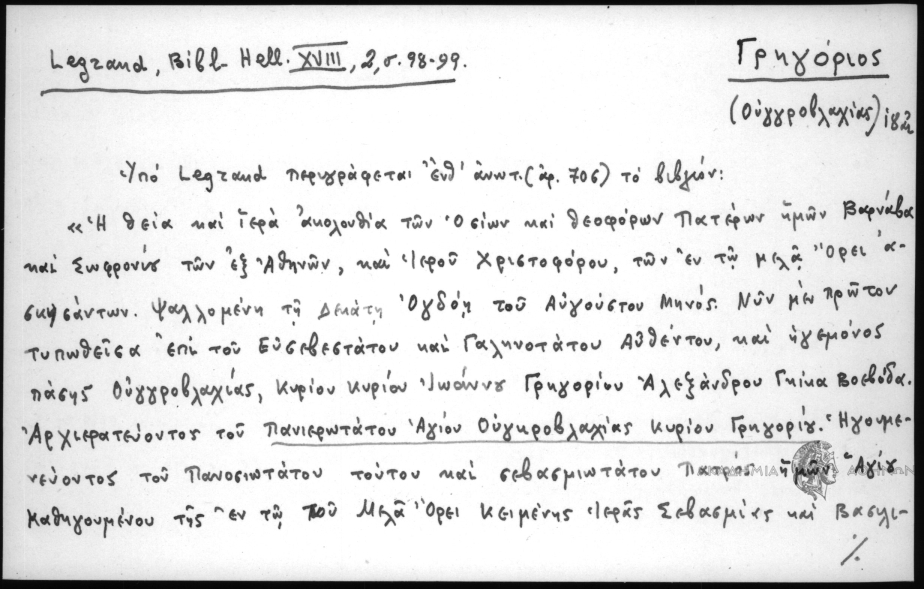 Legrand, Bibl. Hell. XVIII, 2, σ. 98-99.
Γρηγόριος
(Οὑγγροβλαχίας)
Ὑπό Legrand περιγράφεται ἔνθ' ἀνωτ. (ἀρ. 706) τό βιβλίον:
«Ἡ θεία καί ἱερά ἀκολουθία τῶν Ὁσίων καί θεοφόρων Πατέρων ἡμῶν Βαρνάβα
καί Σωφρονίου τῶν ἐξ Ἀθηνῶν, καί Ἱεροῦ Χριστοφόρου, τῶν ἐν τῷ μελᾷ Ὄρει ἀ-
σκησάντων. Ψαλλομένη τῇ Δεκάτῃ Ὀγδόῃ τοῦ Αὐγούστου Μηνός. Νῦν μέν πρῶτον
τυπωθεῖσα ἐπί τοῦ Εὐσεβεστάτου καί Γαληνοτάτου Αὐθέντου, καί ἡγεμόνος
πάσης Οὑγγροβλαχίας, Κυρίου Κυρίου Ἰωάννου Γρηγορίου Ἀλεξάνδρου Γκίκα Βοεβόδα.
Ἀρχιερατεύοντος τοῦ Πανιερωτάτου Ἁγίου Οὑγκροβλαχίας Κυρίου Γρηγορίου. Ἡγουμε-
νεύοντος τοῦ Πανοσιωτάτου τούτου καί σεβασμιωτάτου Πατρός ἡμῶν Ἁγίου
Καθηγουμένου τῆς ἐν τῷ τοῦ Μελᾶ Ὄρει Κειμένης Ἱερᾶς Σεβασμίας καί Βασιλι-
%